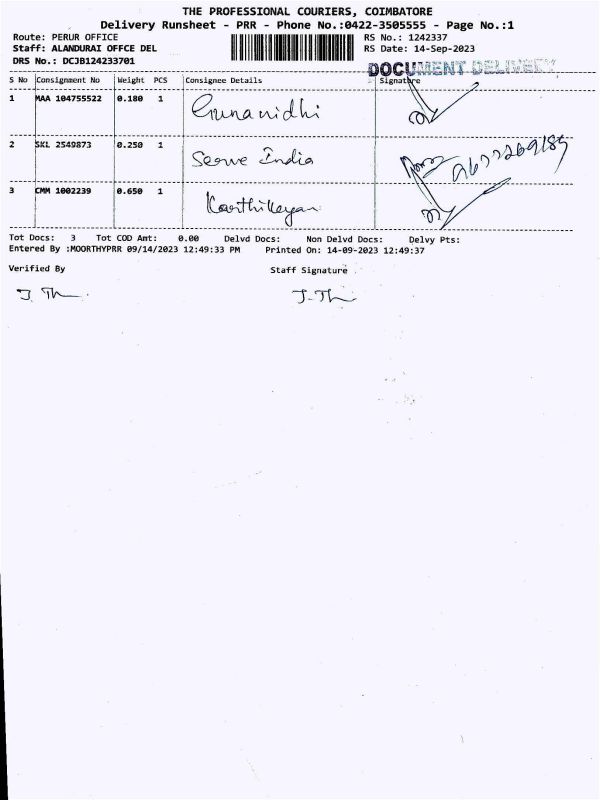 THE PROFESSIONAL COURIERS, COIMBATORE
Delivery Runsheet - PRR - Phone No.:0422-3505555 - Page No.:1
Route: PERUR OFFICE RS No.: 1242337
Staff: ALANDURAI OFFCE DEL RS Date: 14-Sep-2023
DRS No.: DCJB124233701
DOCUMENT DELIVERY
S No Consignment No Weight PCS Consignee Details Signature
1 MAA 104755522 0.180 1 Gunanidhi
2 SKL 2549873 0.250 1 Serve India
3 CMM 1002239 0.650 1 Karthikeyan
Tot Docs: 3 Tot COD Amt: 0.00 Delvd Docs: Non Delvd Docs: Delvy Pts:
Entered By :MOORTHYPRR 09/14/2023 12:49:33 PM Printed On: 14-09-2023 12:49:37
Verified By Staff Signature